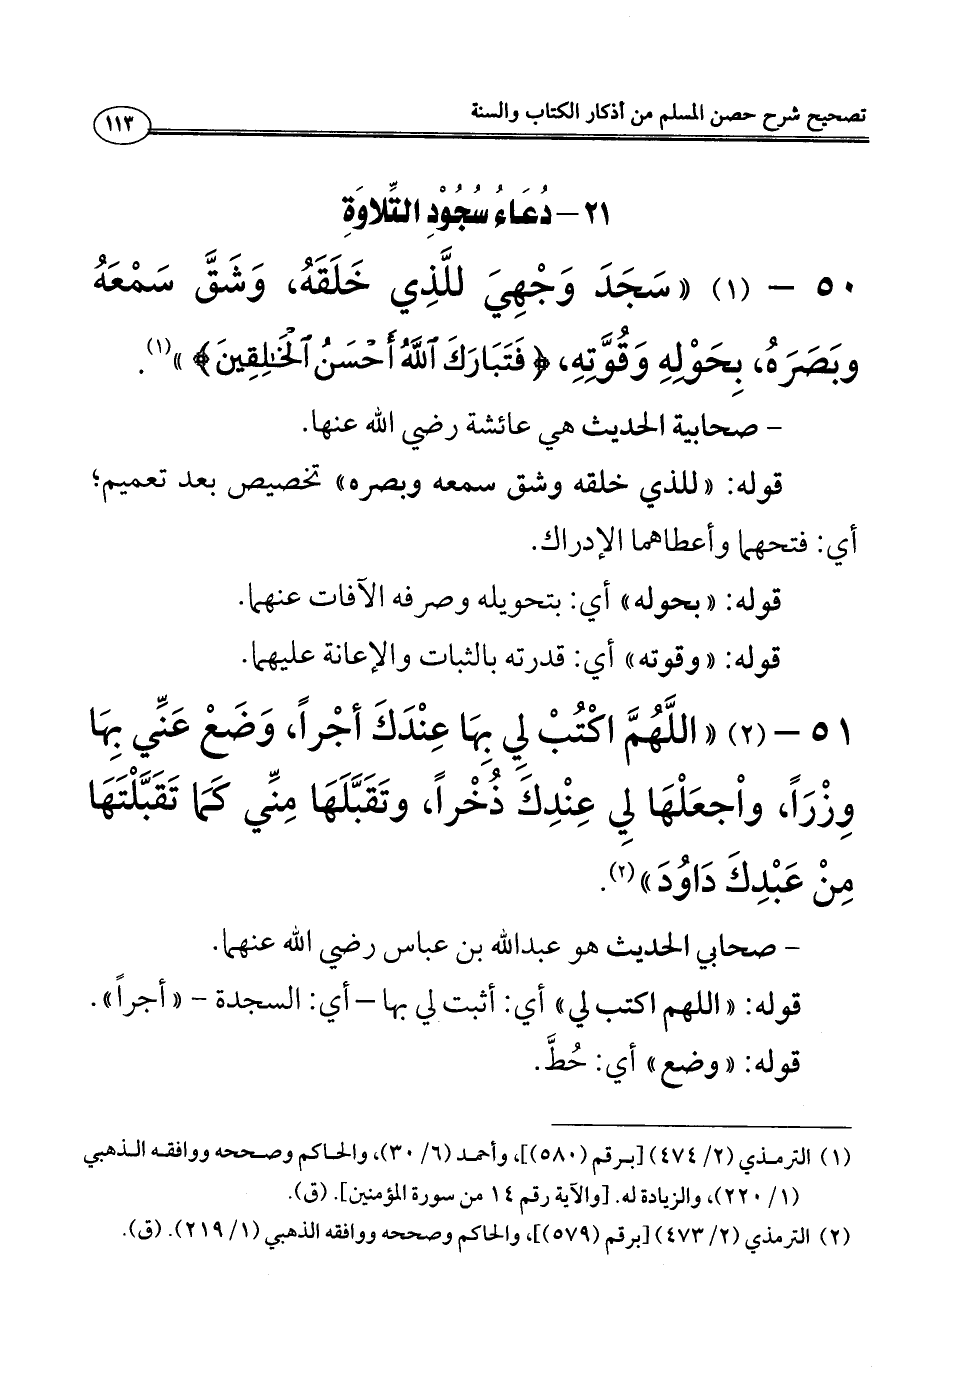 تصحيح شرح حصن المسلم من أذكار الكتاب والسنة
١١٣
٢١ – دُعَاءُ سُجُوْدِ التِّلاوَةِ
٥٠ – (١) «سَجَدَ وَجْهِيَ لِلَّذِي خَلَقَهُ، وَشَقَّ سَمْعَهُ
وبَصَرَهُ، بِحَوْلِهِ وَقُوَّتِهِ، ﴿فَتَبَارَكَ ٱللَّهُ أَحْسَنُ ٱلْخَٰلِقِينَ﴾»(١).
– صحابية الحديث هي عائشة رضي الله عنها.
قوله: «للذي خلقه وشق سمعه وبصره» تخصيص بعد تعميم؛
أي: فتحهما وأعطاهما الإدراك.
قوله: «بحوله» أي: بتحويله وصرفه الآفات عنهما.
قوله: «وقوته» أي: قدرته بالثبات والإعانة عليهما.
٥١ – (٢) «اللَّهُمَّ اكْتُبْ لِي بِهَا عِنْدَكَ أجْراً، وَضَعْ عَنِّي بِهَا
وِزْرَاً، واْجعَلْهَا لِي عِنْدِكَ ذُخْراً، وتَقَبَّلَهَا مِنِّي كَمَا تَقَبَّلْتَهَا
مِنْ عَبْدِكَ دَاوُدَ»(٢).
– صحابي الحديث هو عبدالله بن عباس رضي الله عنهما.
قوله: «اللهم اكتب لي» أي: أثبت لي بها – أي: السجدة – «أجراً».
قوله: «وضع» أي: حُطَّ.
(١) الترمذي (٢/ ٤٧٤) [برقم (٥٨٠)]، وأحمد (٦/ ٣٠)، والحاكم وصححه ووافقه الذهبي
(١/ ٢٢٠)، والزيادة له. [والآية رقم ١٤ من سورة المؤمنين]. (ق).
(٢) الترمذي (٢/ ٤٧٣) [برقم (٥٧٩)]، والحاكم وصححه ووافقه الذهبي (١/ ٢١٩). (ق).